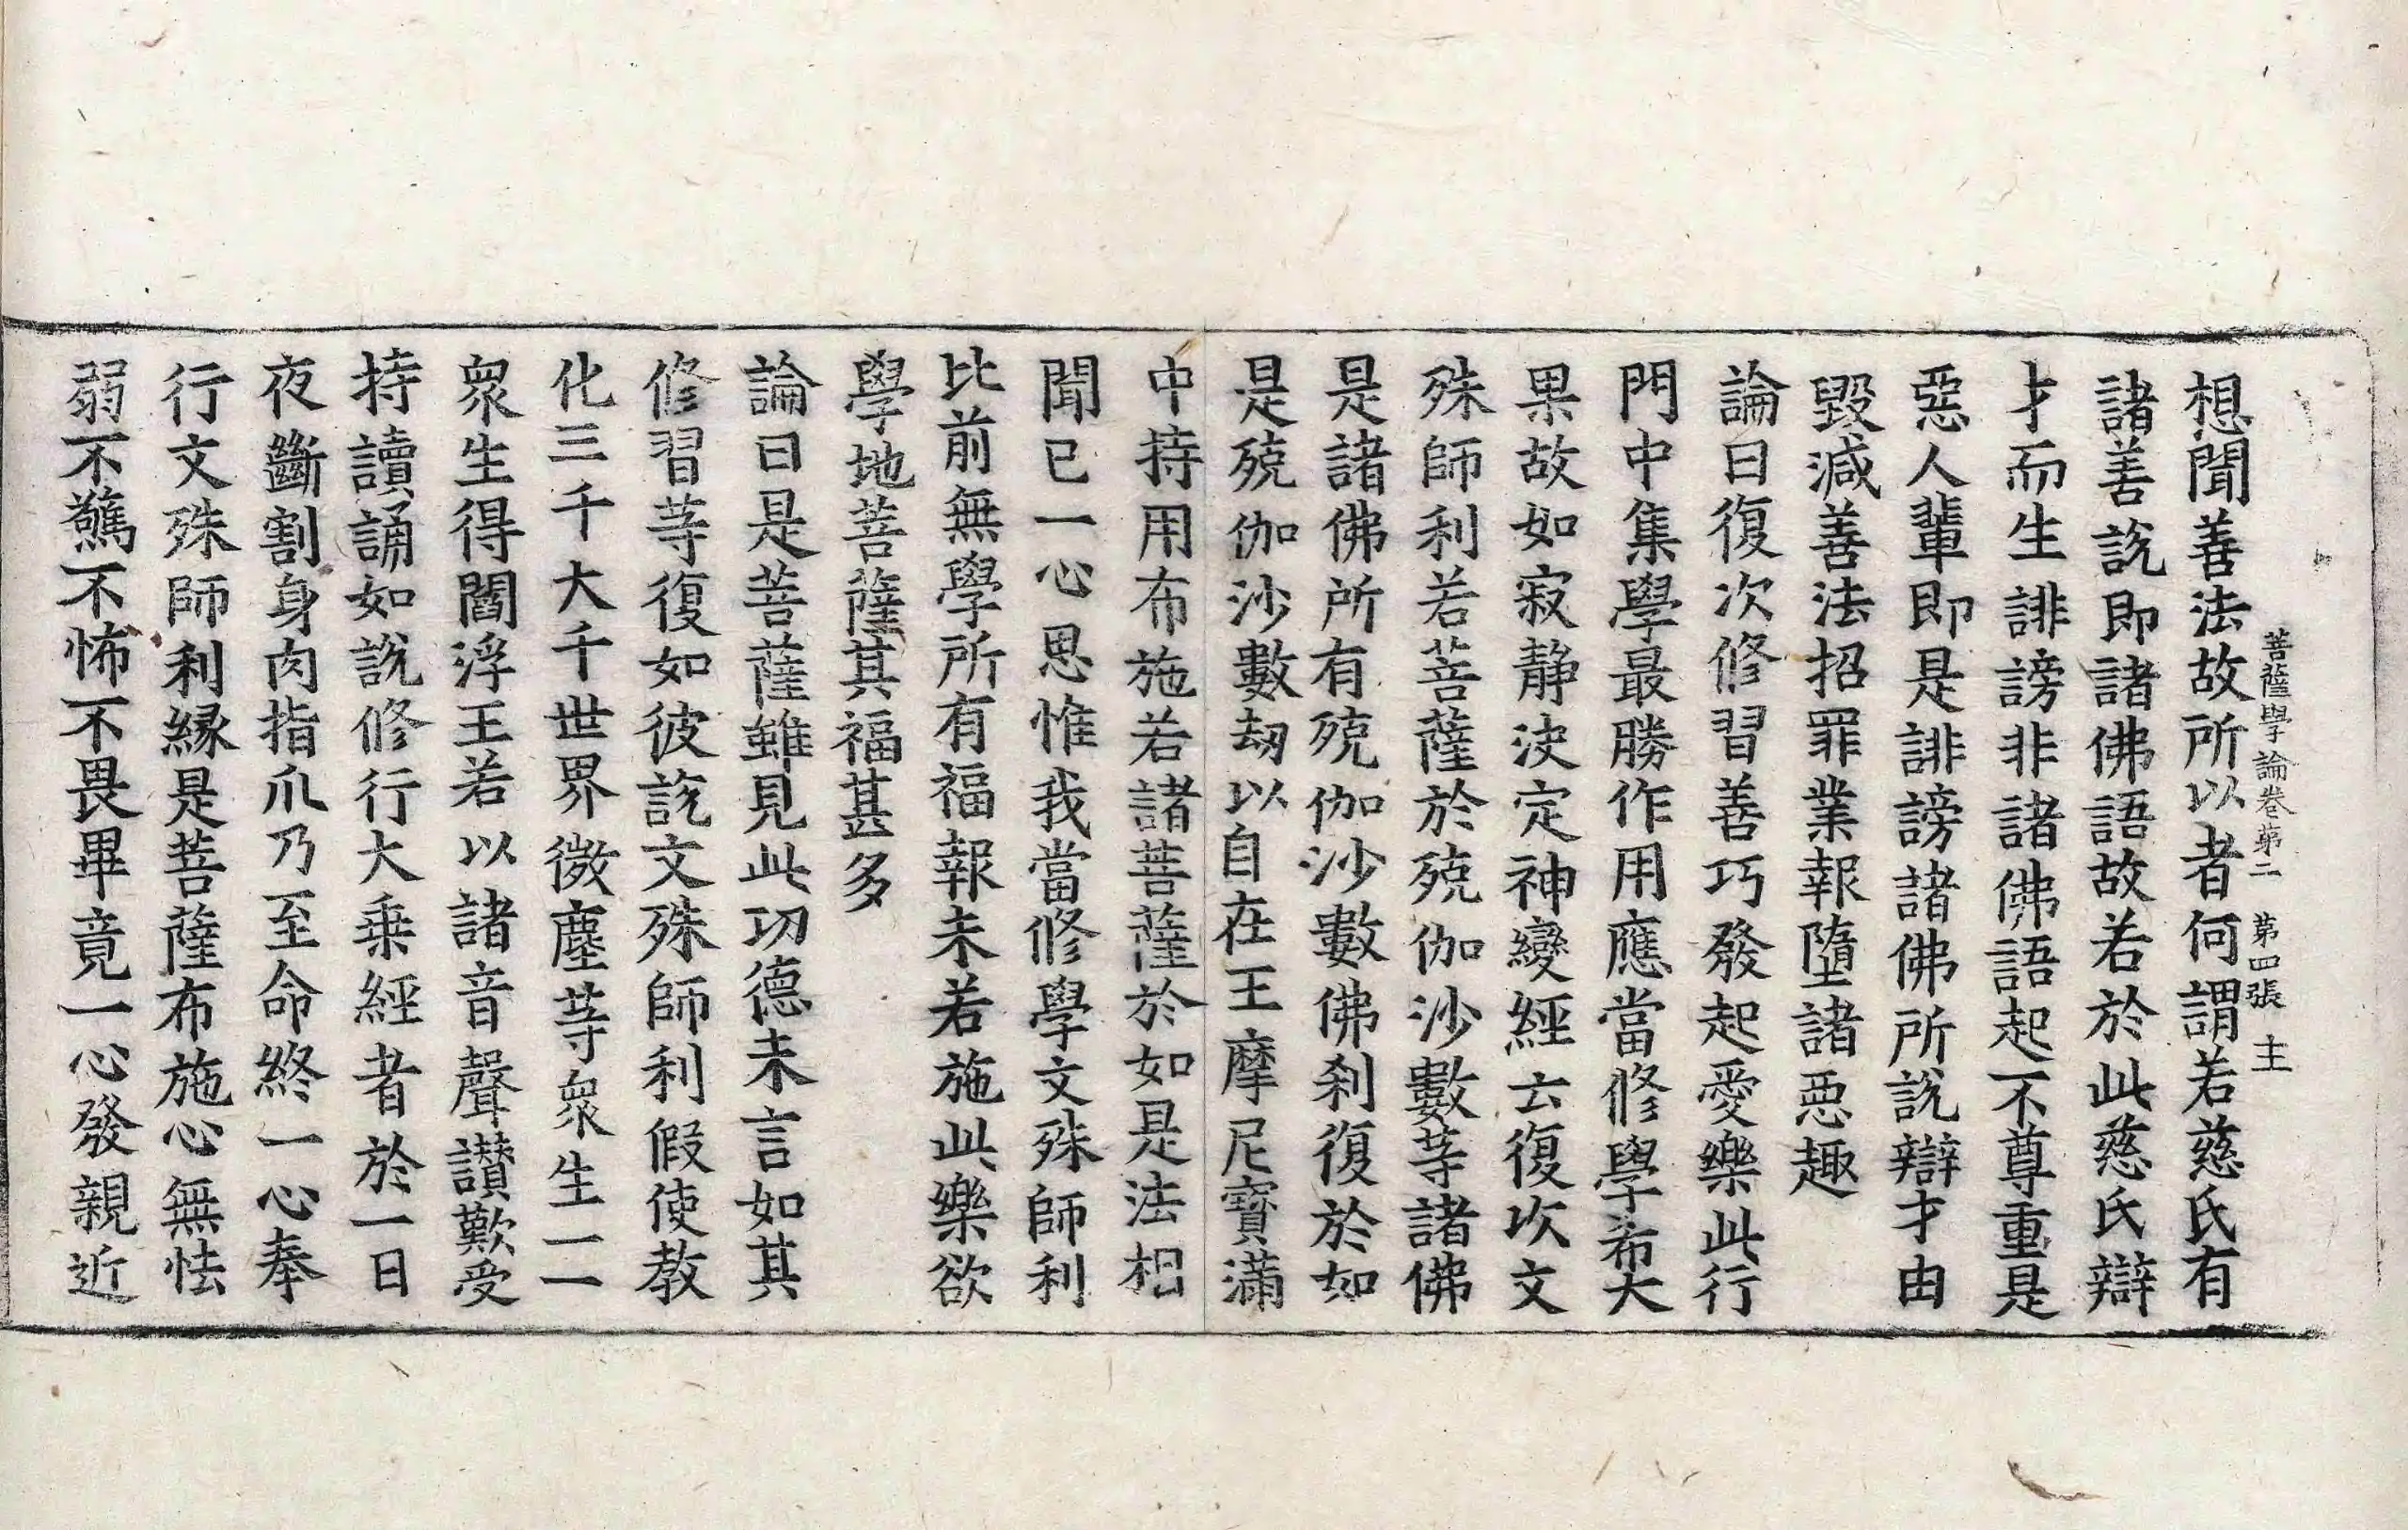 菩薩學論卷第二 第四張 主
想聞善法故所以者何謂若慈氏有
諸善說即諸佛語故若於此慈氏辯
才而生誹謗非諸佛語起不尊重是
惡人輩即是誹謗諸佛所說辯才由
毀滅善法招罪業報墮諸惡趣
論曰復次修習善巧發起愛樂此行
門中集學最勝作用應當修學希大
果故如寂靜決定神變經云復次文
殊師利若菩薩於殑伽沙數等諸佛
是諸佛所有殑伽沙數佛刹復於如
是殑伽沙數劫以自在王摩尼寶滿
中持用布施若諸菩薩於如是法相
聞已一心思惟我當修學文殊師利
比前無學所有福報未若施此樂欲
學地菩薩其福甚多
論曰是菩薩雖見此功德未言如其
修習等復如彼說文殊師利假使教
化三千大千世界微塵等衆生一一
衆生得閻浮王若以諸音聲讃歎受
持讀誦如說修行大乗經者於一日
夜斷割身肉指爪乃至命終一心奉
行文殊師利緣是菩薩布施心無怯
弱不驚不怖不畏畢竟一心發親近